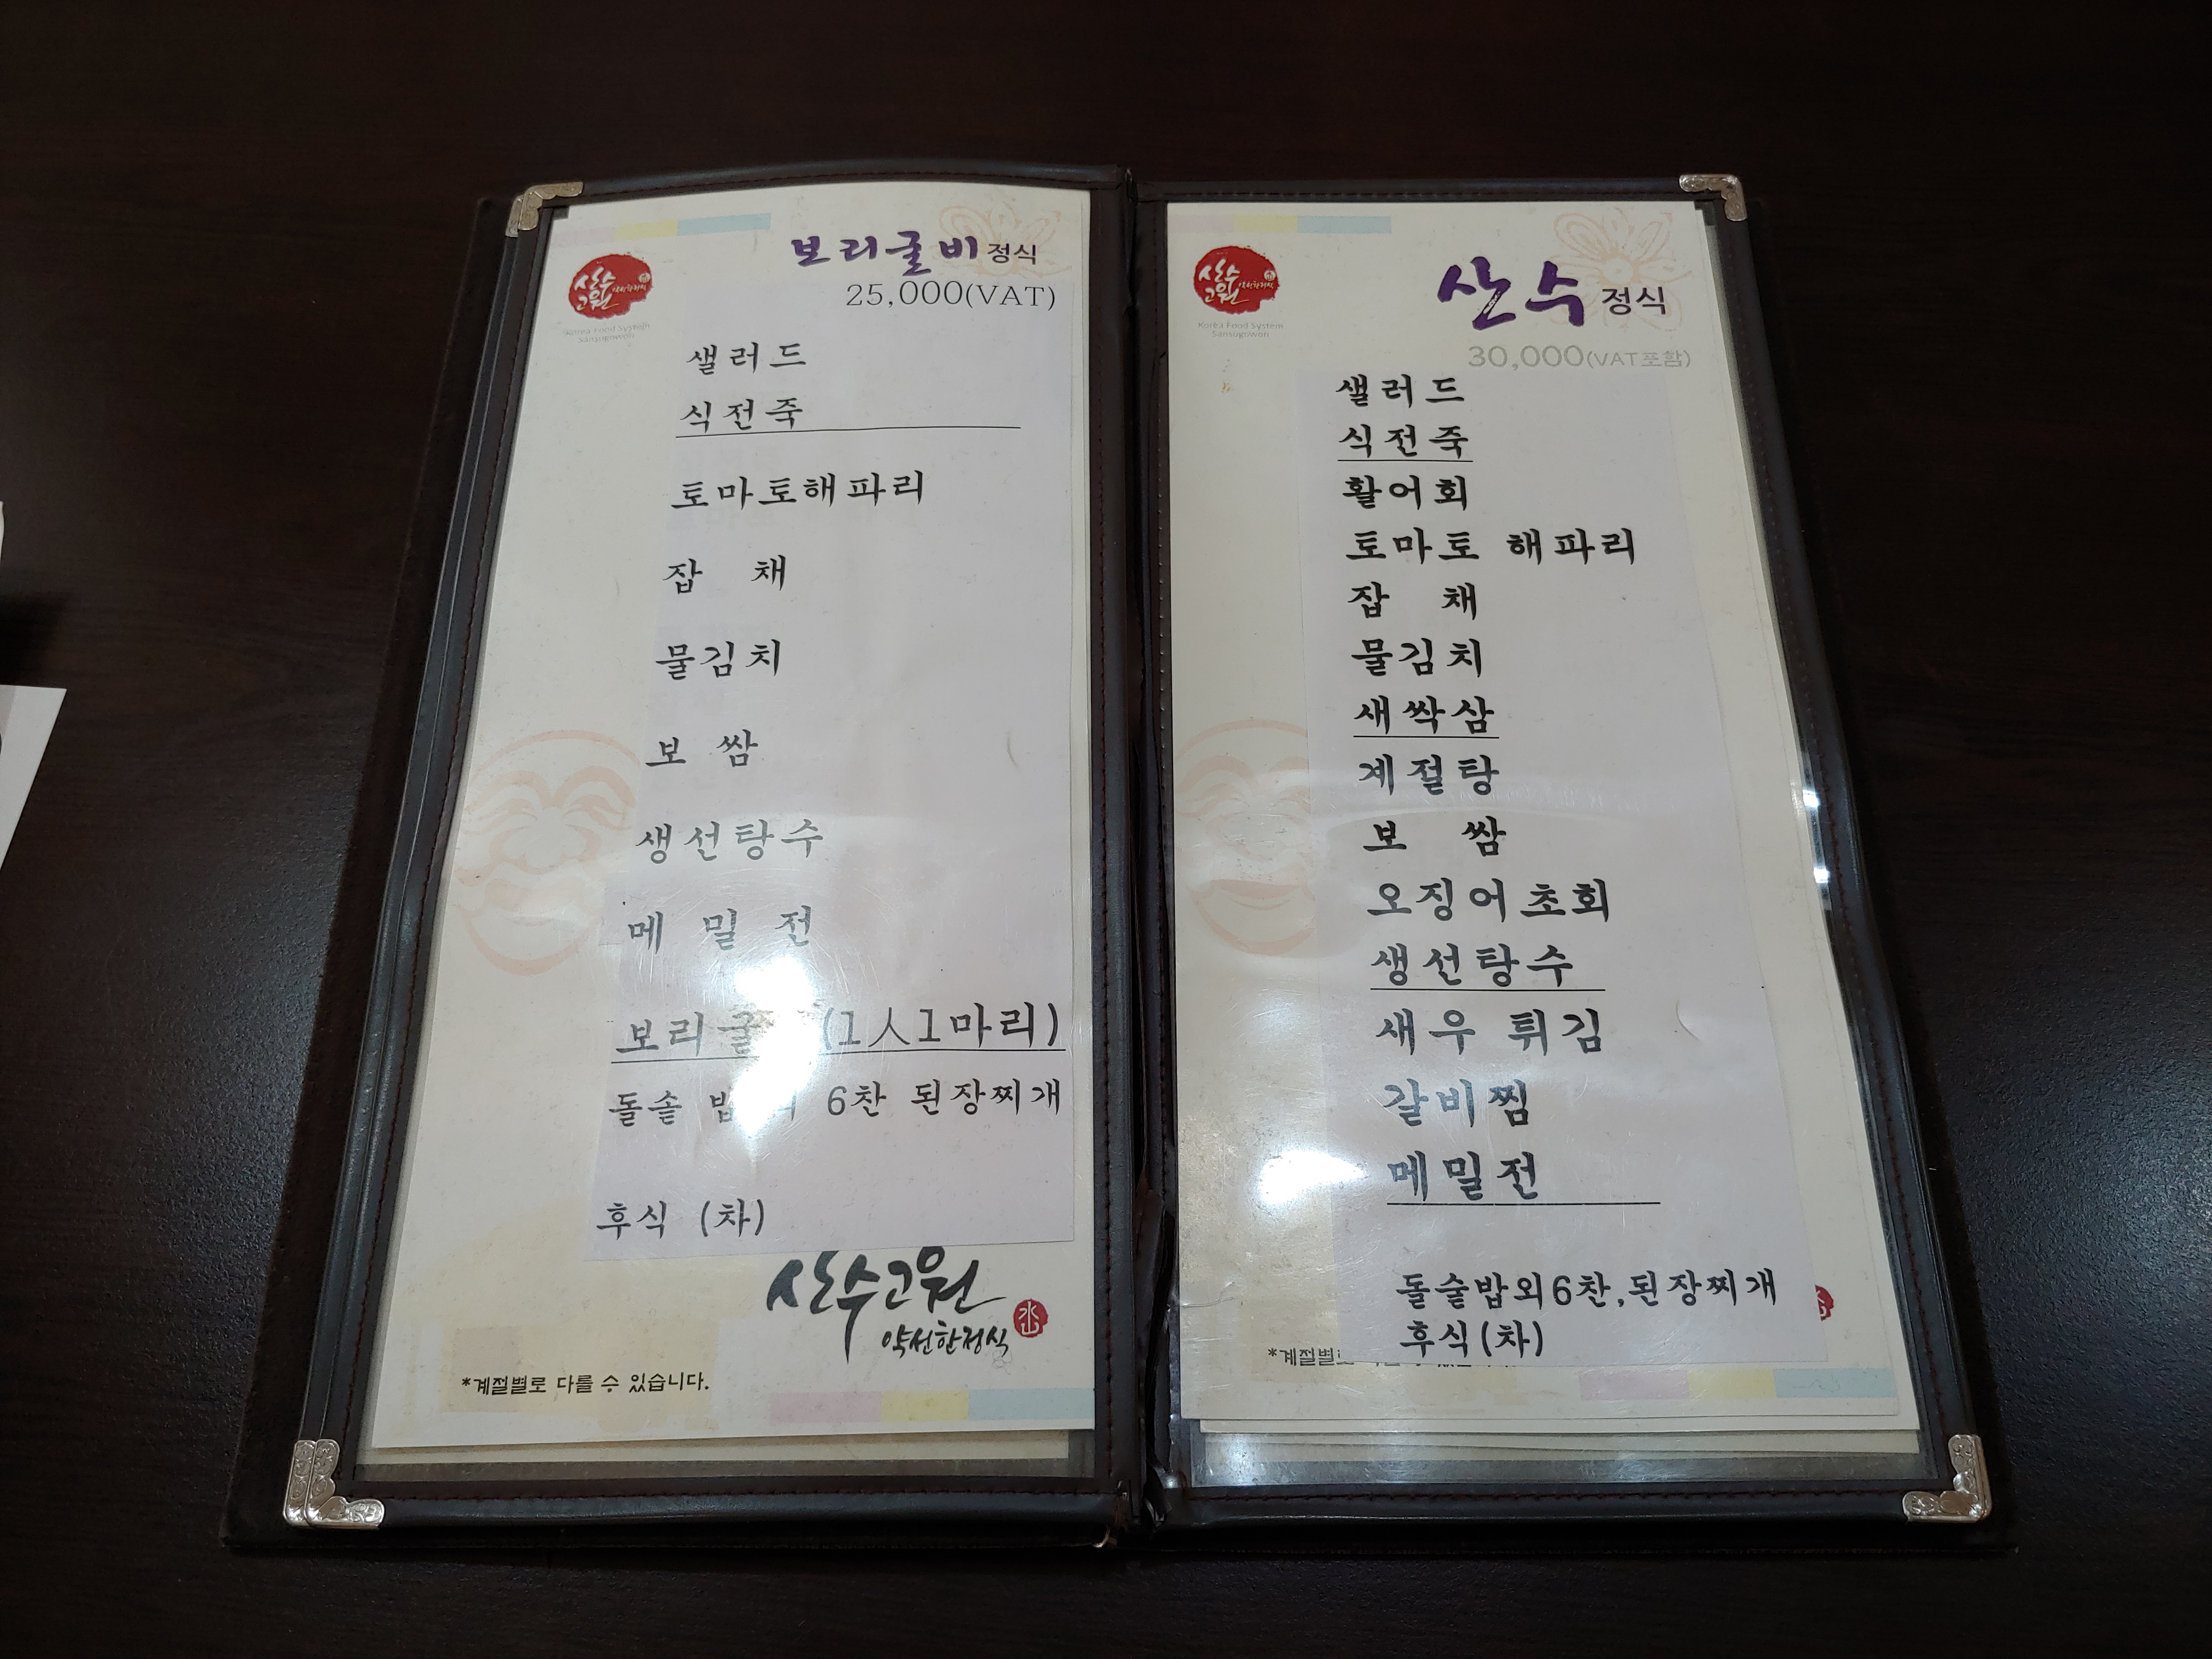 보리굴비 정식
25,000(VAT)
산수
고원
약선한정식
Korea Food System
Sansugowon
샐러드
식전죽
토마토해파리
잡 채
물김치
보 쌈
생선탕수
메 밀 전
보리굴 (1人1마리)
돌솥 밥 6찬 된장찌개
후식 (차)
산수고원
약선한정식
*계절별로 다를 수 있습니다.
산수 정식
30,000(VAT포함)
산수
고원
약선한정식
Korea Food System
Sansugowon
샐러드
식전죽
활어회
토마토 해파리
잡 채
물김치
새싹삼
계절탕
보 쌈
오징어초회
생선탕수
새우 튀김
갈비찜
메밀전
돌솥밥외6찬,된장찌개
후식(차)
*계절별로